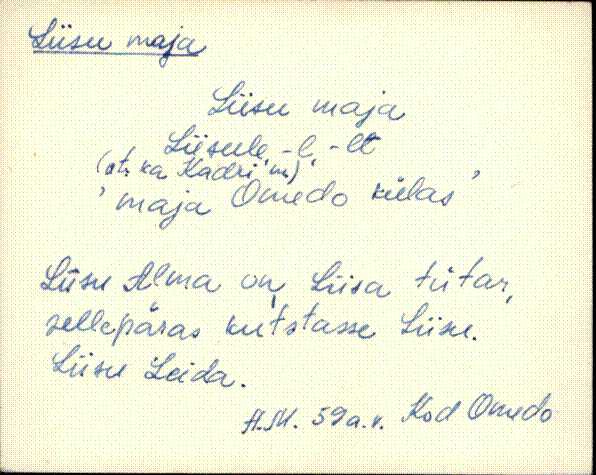 Liisu maja
Liisu maja
Liisule, -l, -lt
(vt. ka Kadri m)
'maja Omedo külas'
Liisu Alma on Liisa tütar,
sellepäras kutstasse Liisu.
Liisu Leida.
H.M. 59 a.v. Kod Omedo